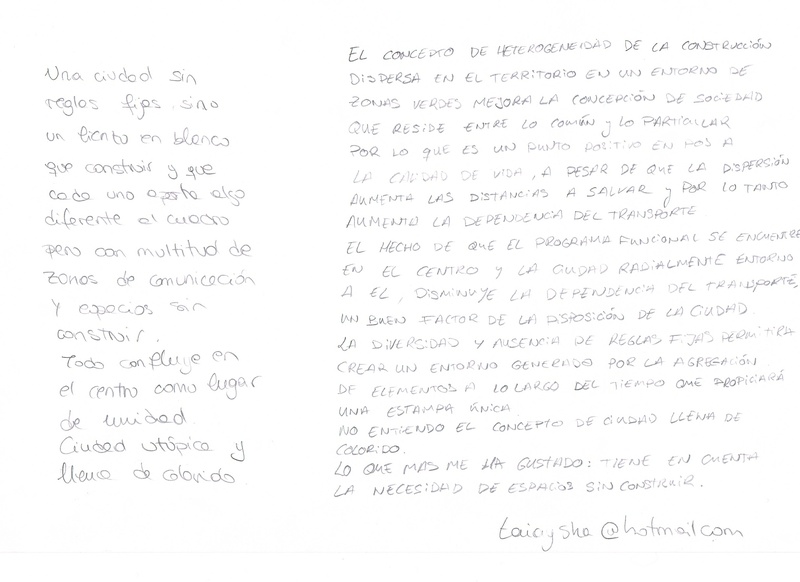 Una ciudad sin
reglas fijas, sino
un lienzo en blanco
que construir y que
cada uno aporta algo
diferente al cuadro
pero con multitud de
zonas de comunicación
y espacios sin
construir.
Todo confluye en
el centro como lugar
de unidad.
Ciudad utópica y
llena de colorido.
EL CONCEPTO DE HETEROGENEIDAD DE LA CONSTRUCCIÓN
DISPERSA EN EL TERRITORIO EN UN ENTORNO DE
ZONAS VERDES MEJORA LA CONCEPCIÓN DE SOCIEDAD
QUE RESIDE ENTRE LO COMÚN y LO PARTICULAR
POR LO QUE ES UN PUNTO POSITIVO EN POS A
LA CALIDAD DE VIDA, A PESAR DE QUE LA DISPERSIÓN
AUMENTA LAS DISTANCIAS A SALVAR y POR LO TANTO
AUMENTA LA DEPENDENCIA DEL TRANSPORTE.
EL HECHO DE QUE EL PROGRAMA FUNCIONAL SE ENCUENTRE
EN EL CENTRO Y LA CIUDAD RADIALMENTE ENTORNO
A EL, DISMINUYE LA DEPENDENCIA DEL TRANSPORTE,
UN BUEN FACTOR DE LA DISPOSICIÓN DE LA CIUDAD.
LA DIVERSIDAD Y AUSENCIA DE REGLAS FIJAS PERMITIRA
CREAR UN ENTORNO GENERADO POR LA AGREGACIÓN
DE ELEMENTOS A LO LARGO DEL TIEMPO QUE PROPICIARÁ
UNA ESTAMPA ÚNICA.
NO ENTIENDO EL CONCEPTO DE CIUDAD LLENA DE
COLORIDO.
LO QUE MAS ME HA GUSTADO: TIENE EN CUENTA
LA NECESIDAD DE ESPACIOS SIN CONSTRUIR.